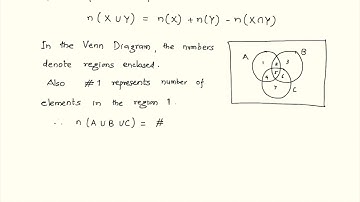 n(X∪Y) = n(X) + n(Y) - n(X∩Y)
In the Venn Diagram, the numbers
denote regions enclosed.
Also #1 represents number of
elements in the region 1.
∴ n(A∪B∪C) = #
A
B
1
2
3
4
5
6
7
C